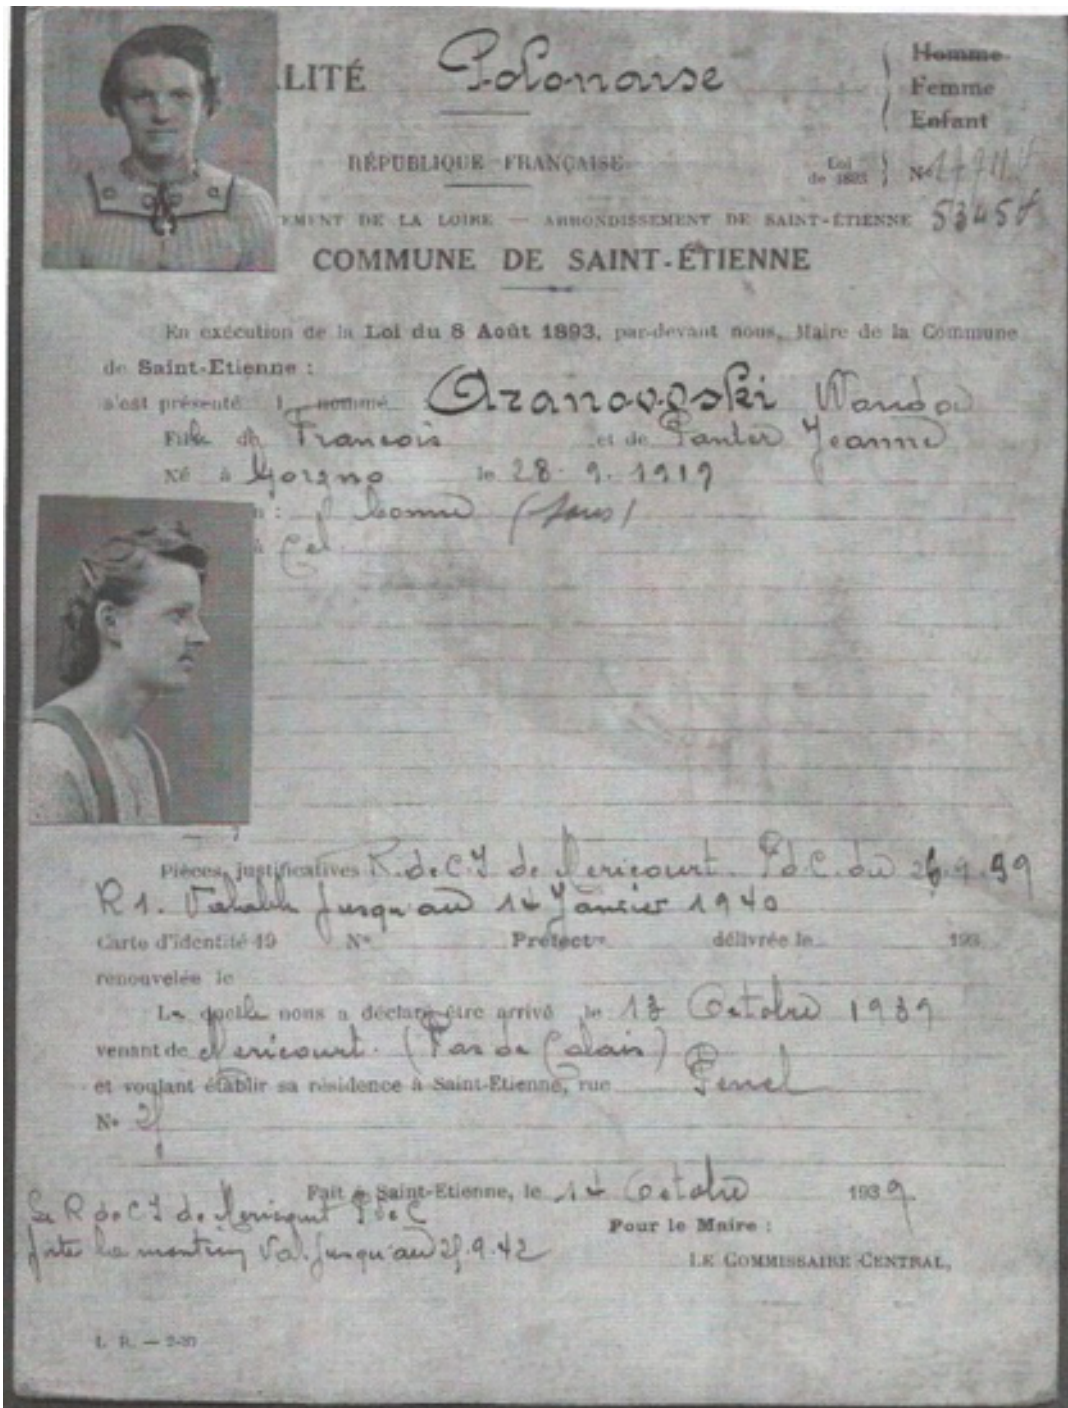 LITÉ Polonaise
Homme
Femme
Enfant
RÉPUBLIQUE FRANÇAISE
Loi de 1893 No
EMENT DE LA LOIRE — ARRONDISSEMENT DE SAINT-ÉTIENNE
COMMUNE DE SAINT-ÉTIENNE
En exécution de la Loi du 8 Août 1893, par-devant nous, Maire de la Commune
de Saint-Etienne :
s'est présenté l nommé Wanda
Fille de François et de Jeanne
Né à Gorzno le 28.9.1919
n :
à Cel.
Pièces justificatives R. de C.I de Mericourt. P.d.C. du
R 1. Valable jusqu'au 14 Janvier 1940
Carte d'identité 19 No Préfect délivrée le 193
renouvelée le
La quelle nous a déclaré être arrivé le 13 Octobre 1939
venant de Mericourt. (Pas de Calais)
et voulant établir sa résidence à Saint-Etienne, rue
No
Fait à Saint-Etienne, le 14 Octobre 1939
Pour le Maire :
LE COMMISSAIRE CENTRAL,
R de C I de Mericourt P de C
la mention Val. jusqu'au